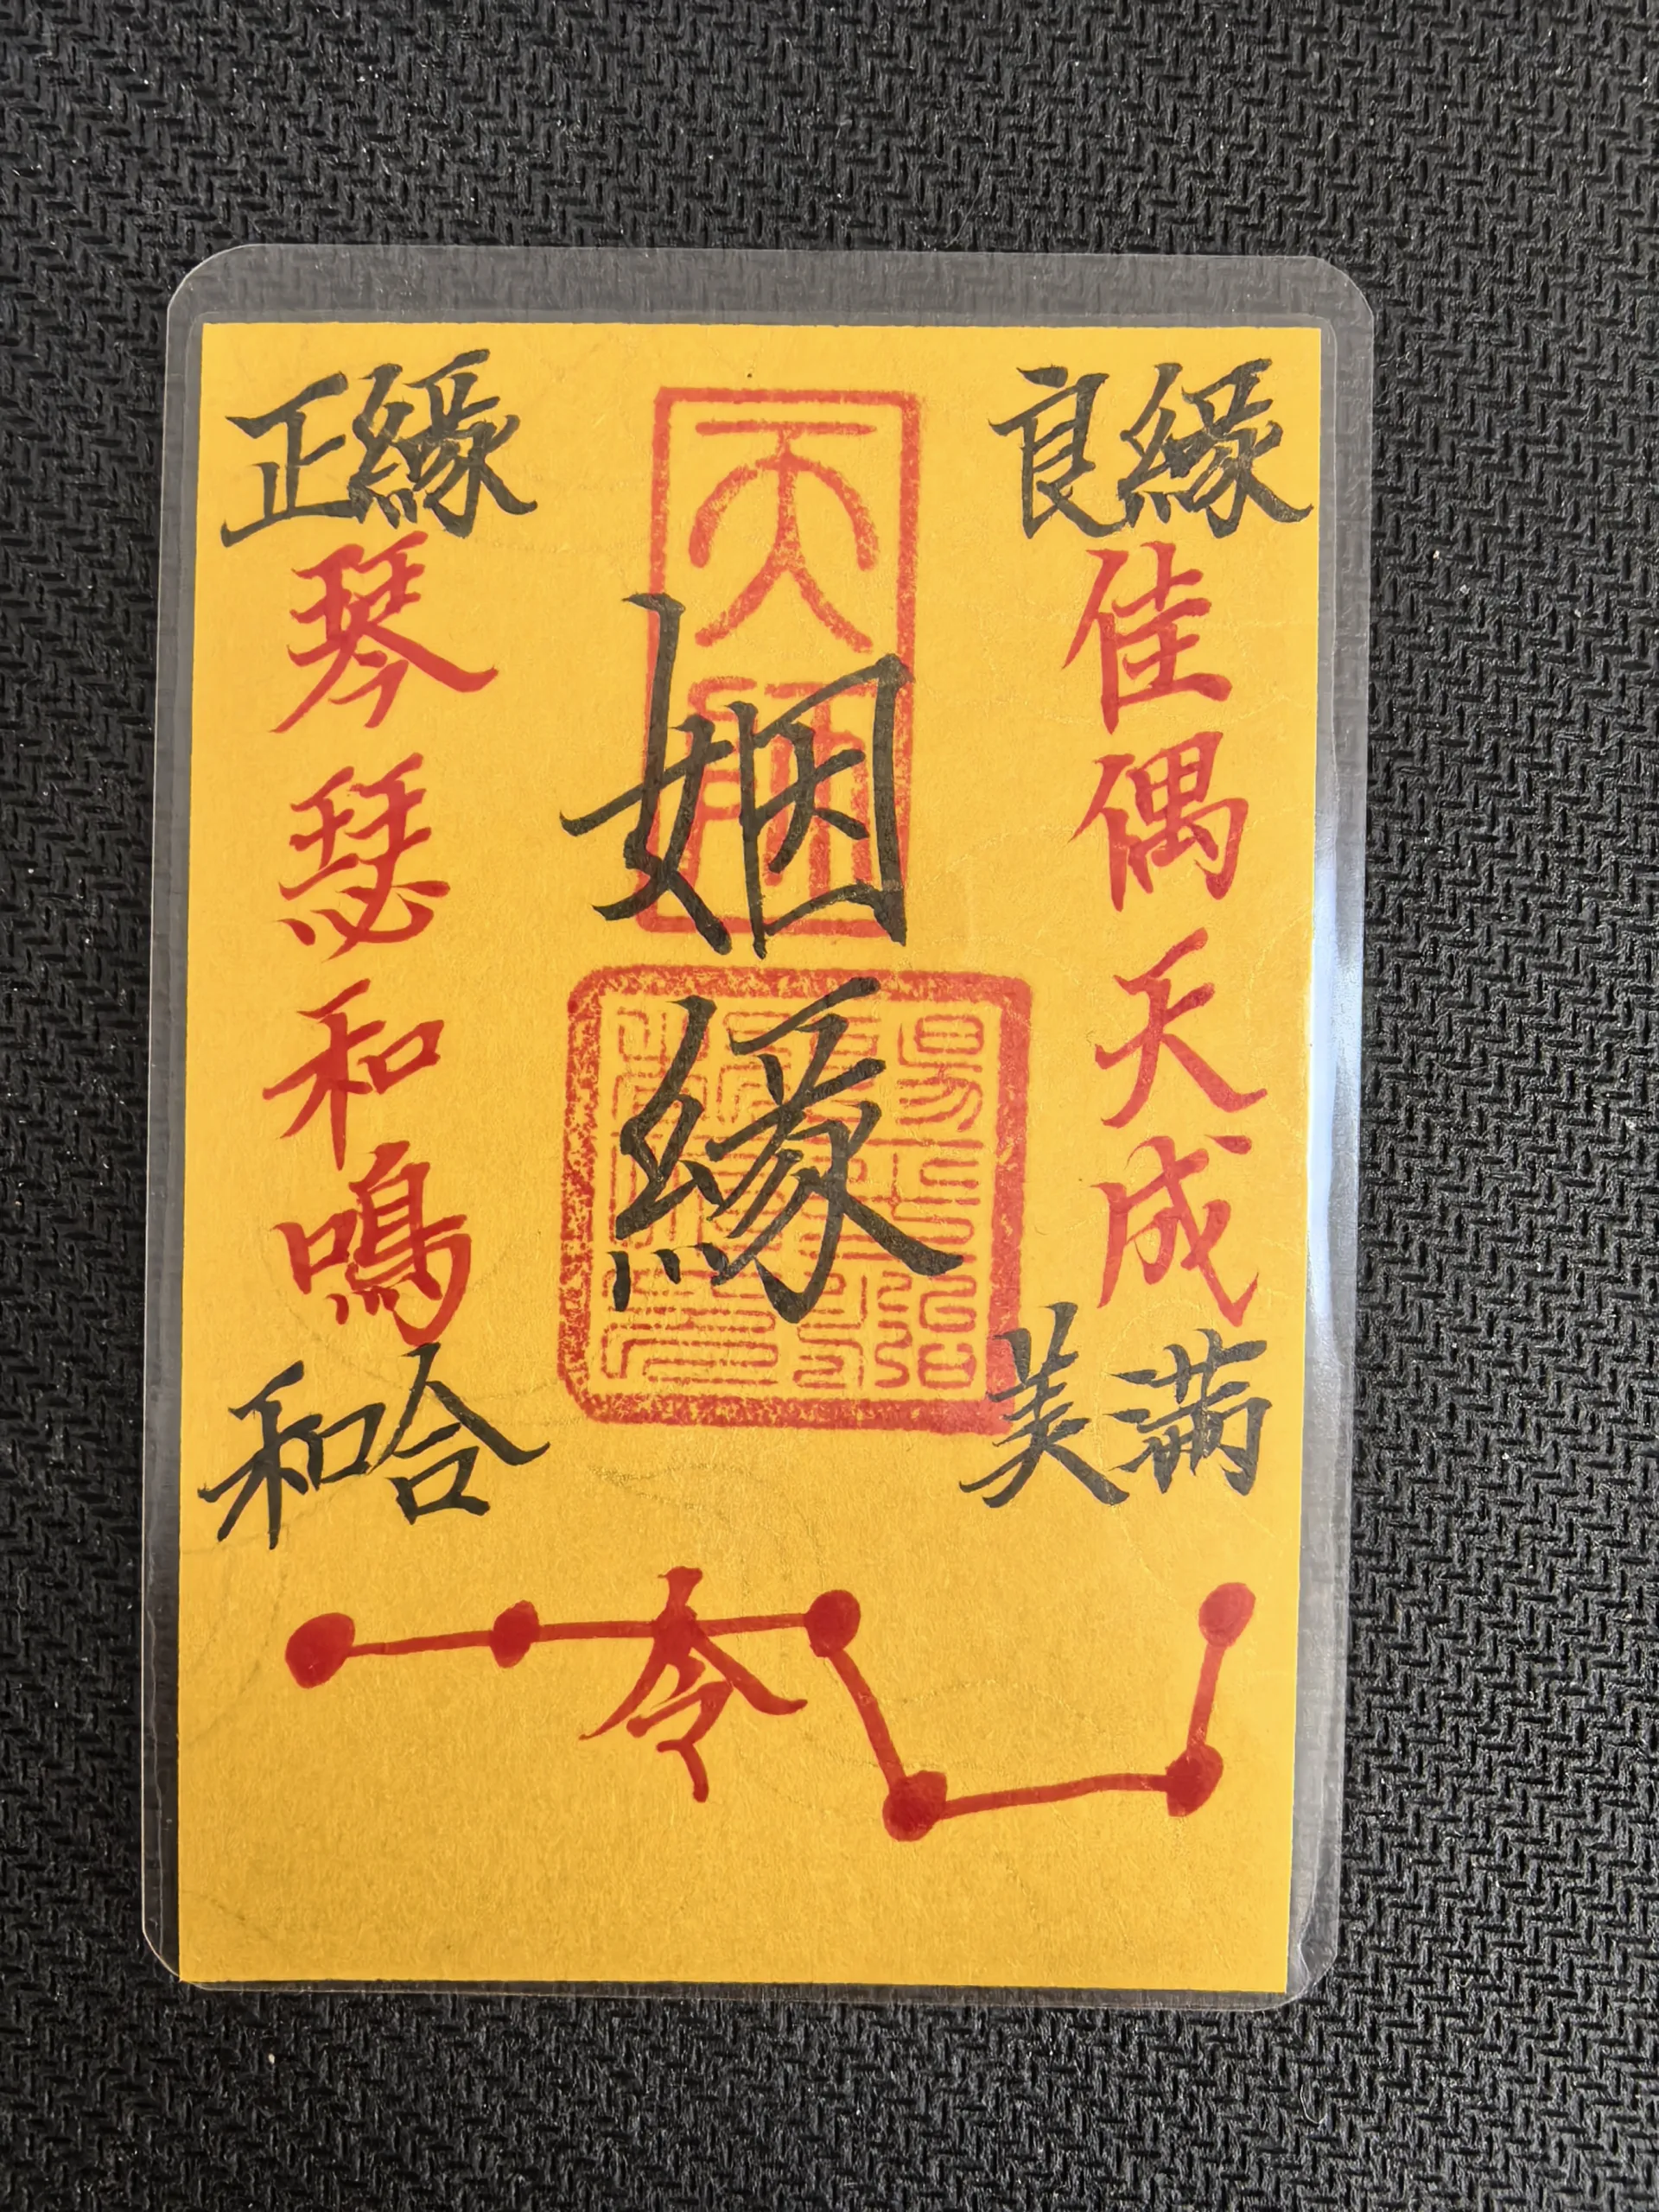 良緣
佳偶天成
美满
姻緣
正緣
琴瑟和鳴
和合
令